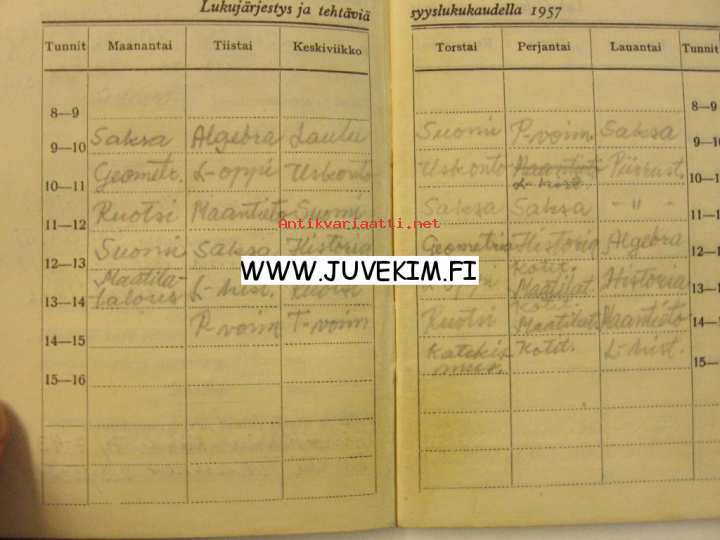 Lukujärjestys ja tehtäviä syyslukukaudella 1957
Tunnit Maanantai Tiistai Keskiviikko Torstai Perjantai Lauantai Tunnit
8—9 8—9
Saksa Algebra Laulu Suomi P. voim. Saksa
9—10 9—10
Geometr. L-oppi Uskonto Uskonto Maantieto Piirust.
L-hist.
10—11 10—1
Ruotsi Maantieto Suomi Saksa Saksa - " -
Antikvariaatti.net
11—12 11—1
Suomi Saksa Historia Geometria Historia Algebra
12—13 12—1
WWW.JUVEKIM.FI
Maatila- L-hist. Kotit. Historia
talous Maatilat.
13—14 13—1
P. voim T-voim Ruotsi Maatilat. Maantieto
14—15 14—1
Katekis Kotit. L-hist.
mus.
15—16 15—